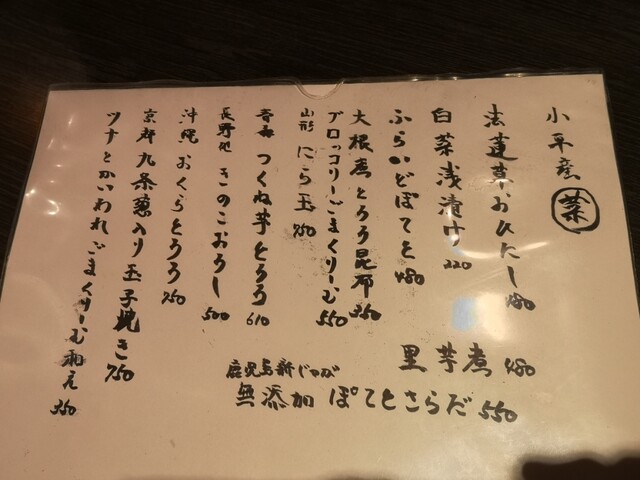 小平産 菜
法蓮草おひたし 480
白菜浅漬け 220
ふらいどぽてと 480
大根煮とろろ昆布 350
ブロッコリーごまくりーむ 550
山形 にら玉 750
青森 つくね芋とろろ 610
長野他 きのこおろし 500
沖縄 おくらとろろ 750
京都 九条葱入り玉子焼き 750
ツナとかいわれごまくりーむ和え 350
里芋煮 480
鹿児島新じゃが
無添加 ぽてとさらだ 550